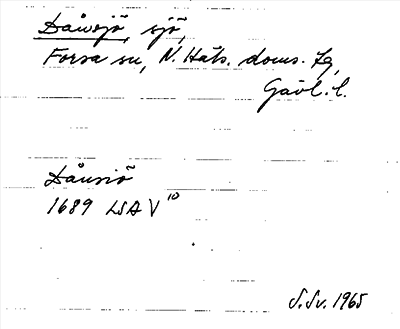 Dåvsjö, sjö,
Forsa sn, N. Häls. doms. fg,
Gävl. l.
Dånsiö
1689 LSA V 10
S. Sv. 1965